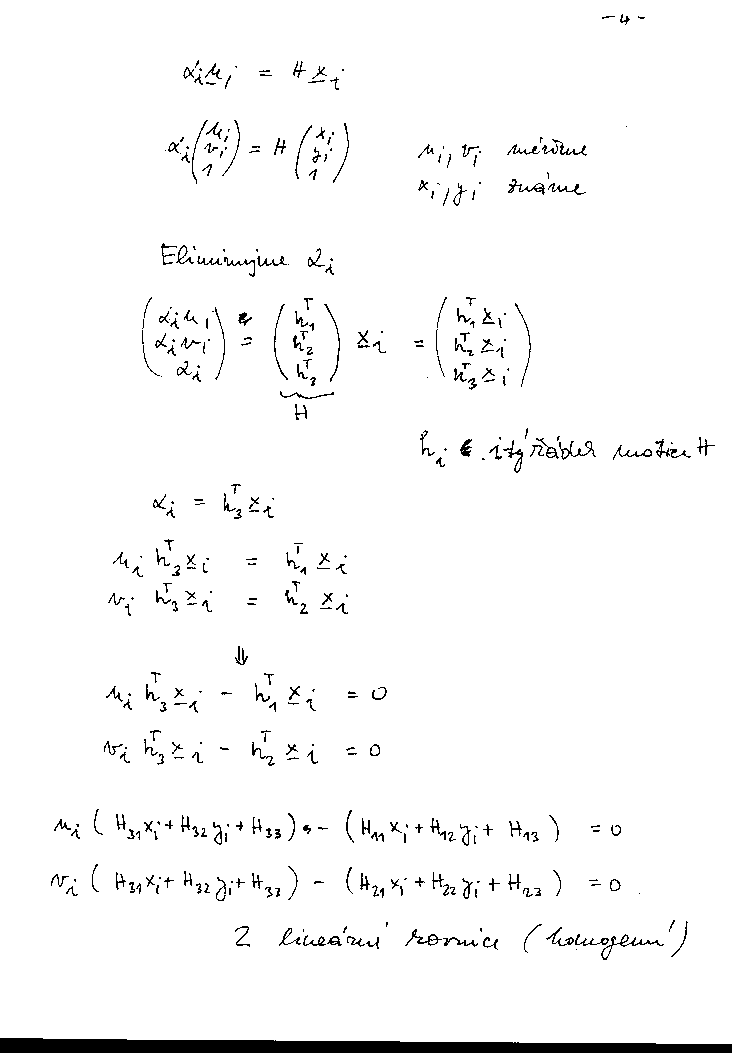 -4-
αᵢ u̲ᵢ = H x̲ᵢ
αᵢ (uᵢ vᵢ 1) = H (xᵢ yᵢ 1) uᵢ, vᵢ měříme
xᵢ, yᵢ známe
Eliminujme αᵢ
(αᵢuᵢ αᵢvᵢ αᵢ) = (h₁ᵀ h₂ᵀ h₃ᵀ) x̲ᵢ = (h₁ᵀx̲ᵢ h₂ᵀx̲ᵢ h₃ᵀx̲ᵢ)
H
hᵢ є i-tý řádek matice H
αᵢ = h₃ᵀ x̲ᵢ
uᵢ h₃ᵀ x̲ᵢ = h₁ᵀ x̲ᵢ
vᵢ h₃ᵀ x̲ᵢ = h₂ᵀ x̲ᵢ
⇓
uᵢ h₃ᵀ x̲ᵢ - h₁ᵀ x̲ᵢ = 0
vᵢ h₃ᵀ x̲ᵢ - h₂ᵀ x̲ᵢ = 0
uᵢ ( H₃₁xᵢ + H₃₂yᵢ + H₃₃ ) - ( H₁₁xᵢ + H₁₂yᵢ + H₁₃ ) = 0
vᵢ ( H₃₁xᵢ + H₃₂yᵢ + H₃₃ ) - ( H₂₁xᵢ + H₂₂yᵢ + H₂₃ ) = 0
2 lineární rovnice (homogenní)